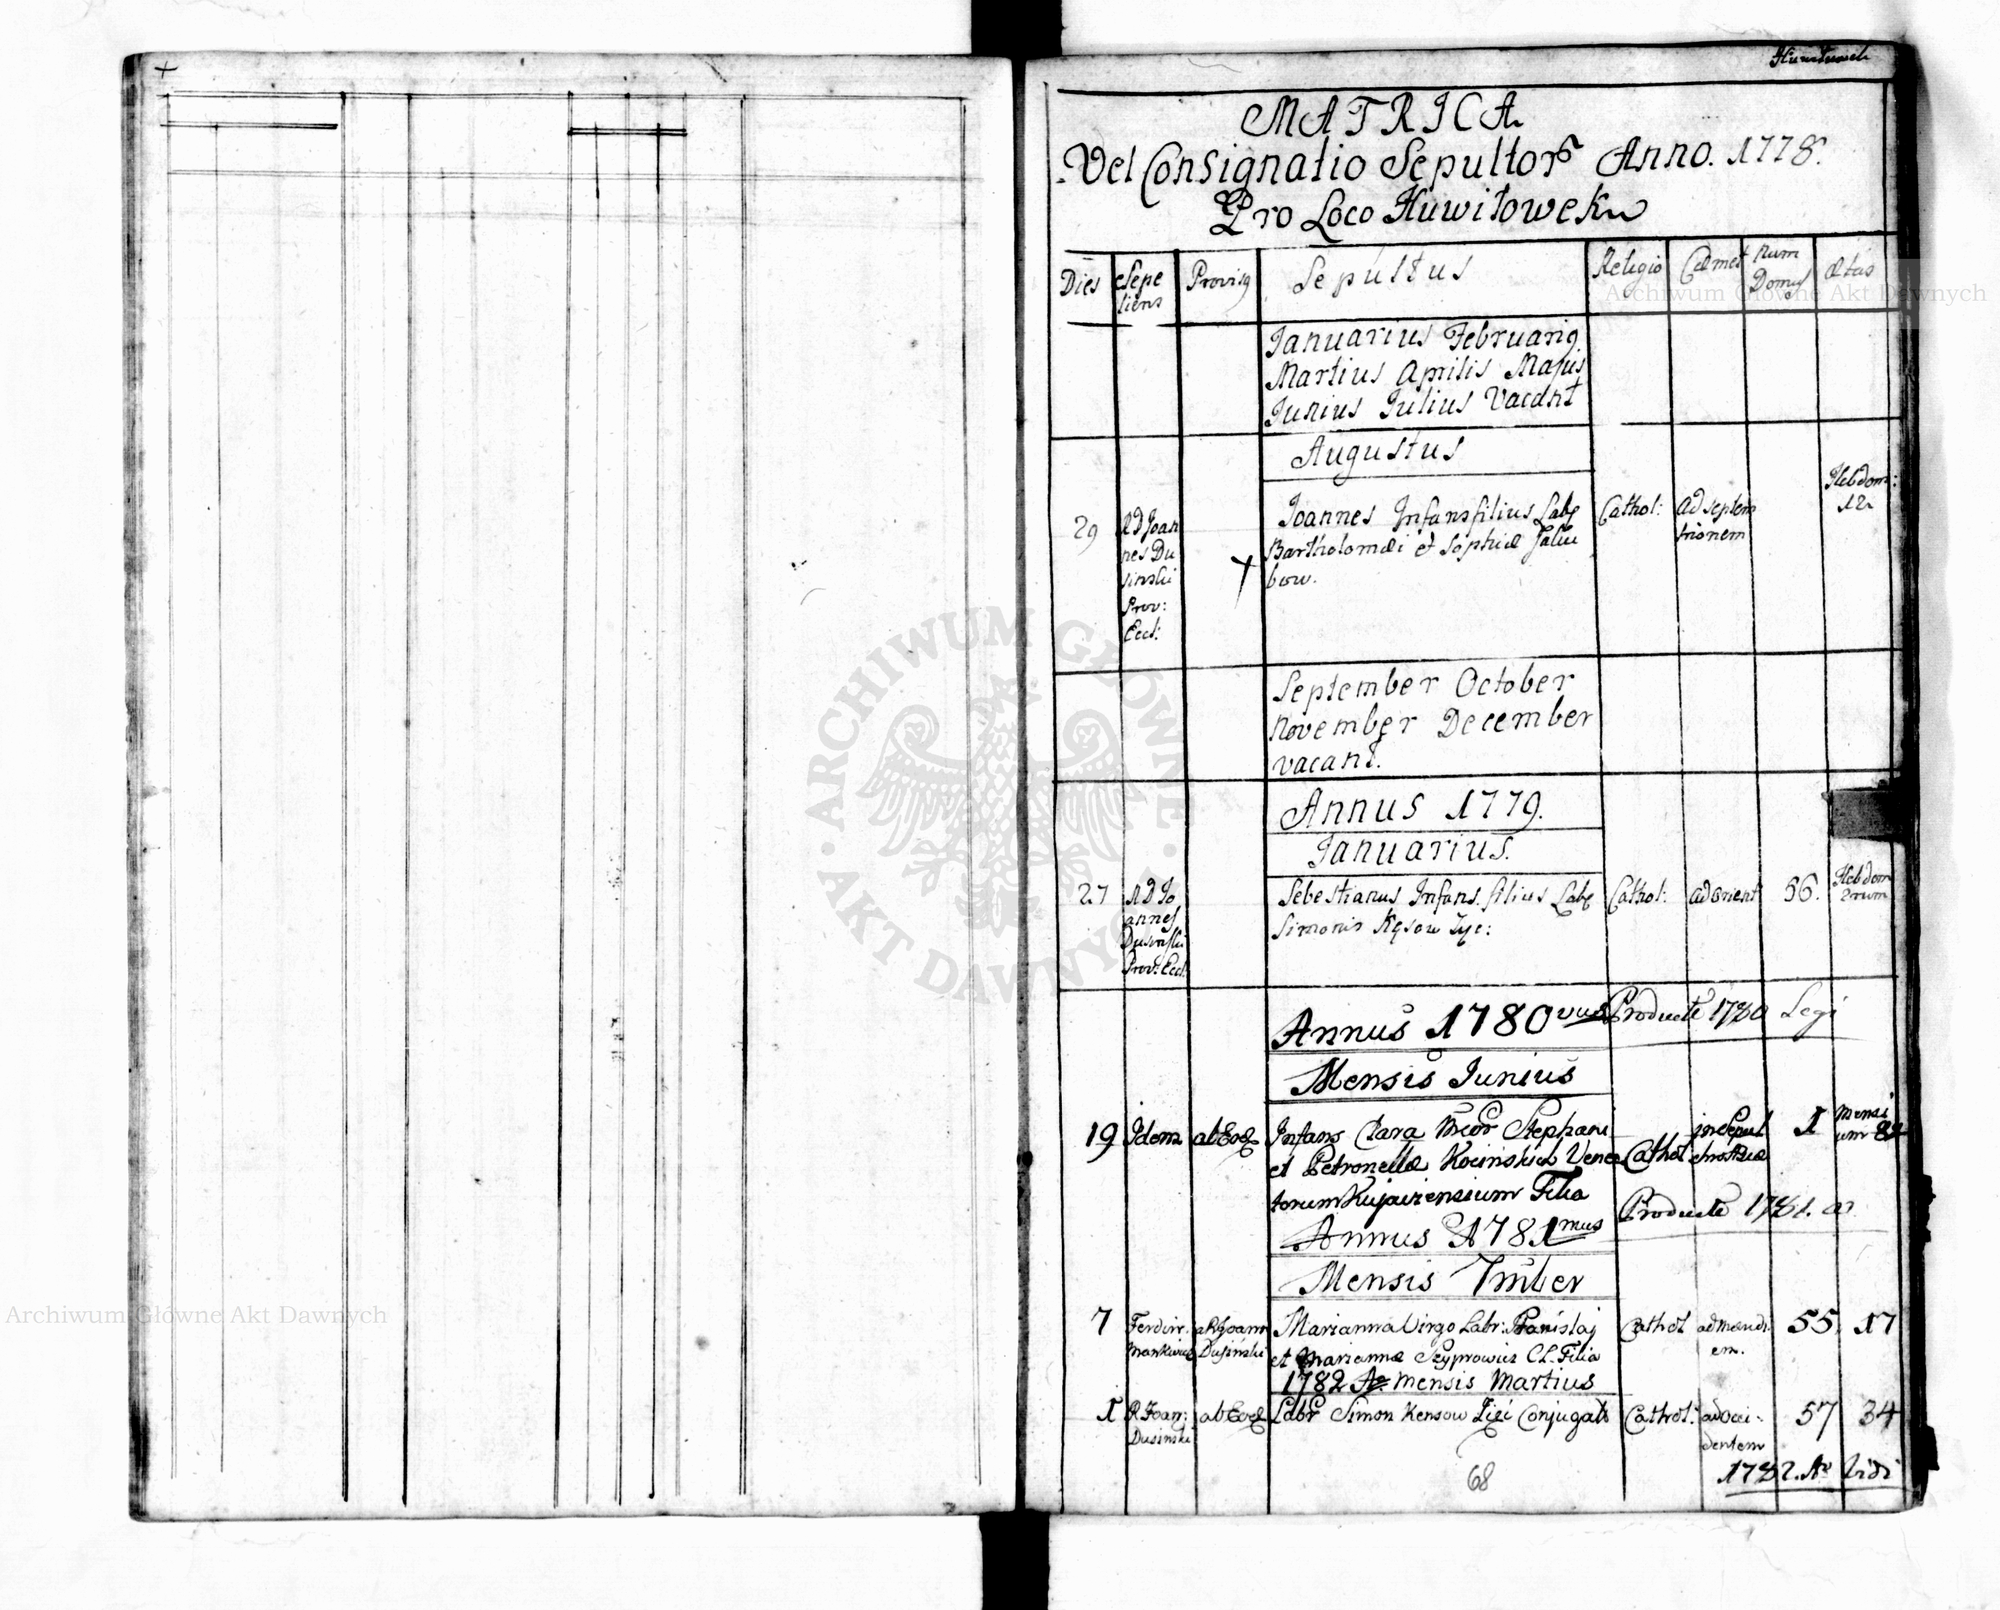 MATRICA
Vel Consignatio Sepultor Anno. 1778.
Pro Loco Huwiłowek
Dies Sepe liens Provis Sepultus Religio Cæmet Num Domus Ætas
Januarius Februari9
Martius Aprilis Majus
Junius Julius Vacant
Augustus
29 RD Joan nes Du sinski Prov: Eccl:
Joannes Infans filius Lab
Bartholomæi et Sophiæ
bow.
Cathol: Ad septem trionem Hebdom: 12
September October
November December
vacant.
Annus 1779.
Januarius.
27 RD Jo annes Dusinski Prov: Eccl:
Sebestianus Infans filius Lab
Simonis
Cathol: ad orient 56. Hebdom
Annus 1780 Producte 1780 Legi
Mensis Junius
19 Idem
Infans Clara Stephani
et Petronellæ Kocinskich Vene
torum Kujaviensium Filia
Cathol 1 Mensi um
Producte 1781.
Annus 1781mus
Mensis
7
Marianna Virgo Labr: Stanislaj
et Mariannæ Filia
Cathol 55. 17
1782 Ao Mensis Martius
1 R Joan: Dusinski
Labr Simon Kensow Conjugat
Cathol: ad occi- dentem 57 34
1782. Ao Vidi
68
Archiwum Główne Akt Dawnych
Archiwum Główne Akt Dawnych
ARCHIWUM GŁÓWNE · AKT DAWNYCH ·